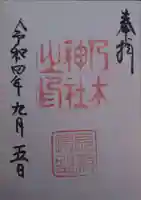 奉拝
乃木
神社
之印
令和四年九月五日